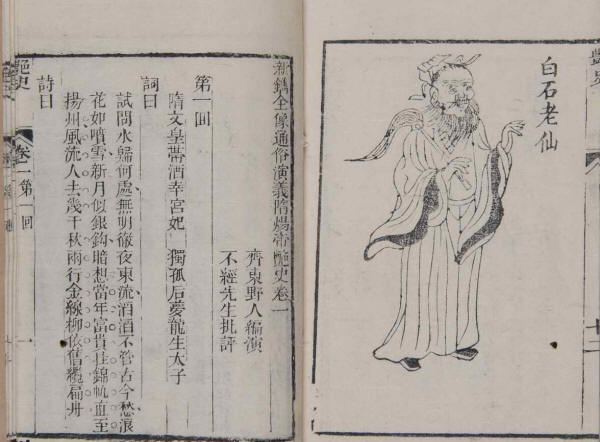 白石老仙
新鐫全像通俗演義隋煬帝艷史卷一
齊東野人編演
不經先生批評
第一回
隋文皇帶酒幸宮妃　獨孤后夢龍生太子
詞曰
試問水歸何處無明徹夜東流滔滔不管古今愁浪
花如噴雪新月似銀鈎暗想當年富貴挂錦帆直至
揚州風流人去幾千秋兩行金線柳依舊纜扁舟
詩曰
艷史　卷一第一回　一